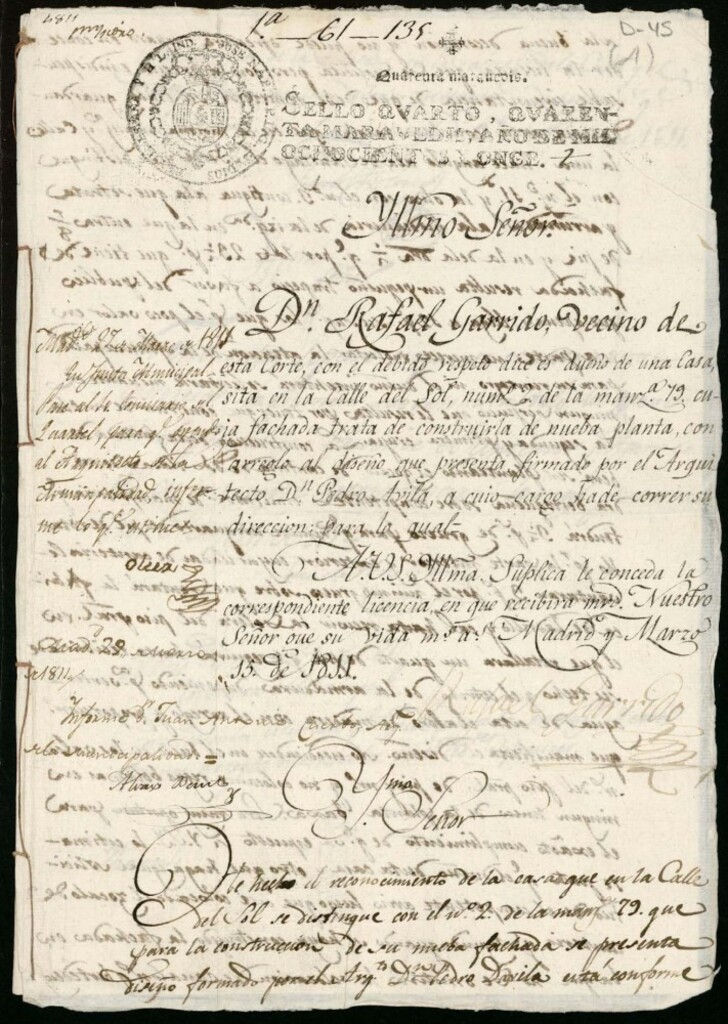 1811
1.ª — 61 — 135
D-45
(1)
Quarenta maravedis.
SELLO QVARTO, QVAREN-
TA MARAVEDIS, AÑO DE MIL
OCHOCIENTOS Y ONCE.
Yllmo Señor.
Dn. Rafael Garrido, vecino de
esta Corte, con el debido respeto dice es dueño de una Casa,
sita en la Calle del Sol, numº. 2 de la manz.ª 79. cu-
ia fachada trata de construirla de nueba planta, con
arreglo al diseño que presenta firmado por el Arqui
tecto Dn Pedro Avila, a cuio cargo hade correr su
direccion; para lo qual
A.V.S. Yllma. Suplica le conceda la
correspondiente licencia, en que recibira mrd. Nuestro
Señor gue su vida ms. as. Madrid y Marzo
13. de 1811.
Rafael Garrido
Madrid 27 de Marzo de 1811
Junta Municipal
Pase al Sr. Comisario del
Quartel, para qe
al Arquitecto de la
Municipalidad, infor
me lo qe
Madd. 29
de 1811
Informe Dn. Juan Antonio
Cuervo, Arqto
de la Municipalidad =
Yllmo
Señor
He hecho el reconocimiento de la casa que en la Calle
del Sol se distingue con el nº. 2. de la manzª 79. que
para la construccion de su nueba fachada se presenta
diseño formado por el Arqto Dn Pedro Davila está conforme